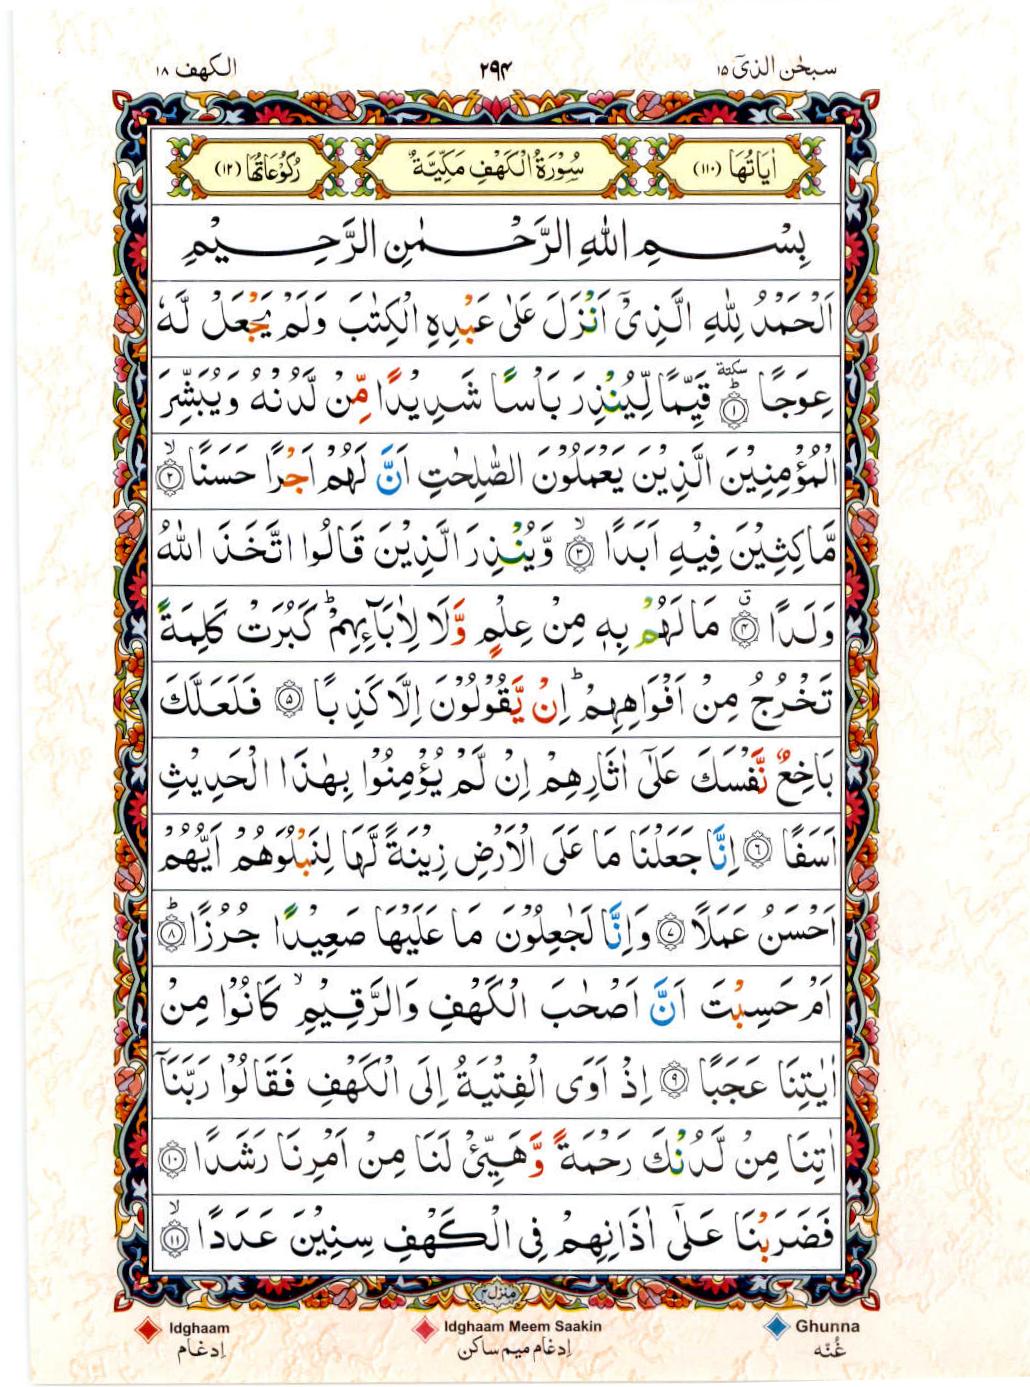 سبحٰن الذیٓ ۱۵
۲۹۴
الكهف ۱۸
اٰيَاتُهَا (۱۱۰)
سُوْرَةُ الْكَهْفِ مَكِّيَّةٌ
رُكُوْعَاتُهَا (۱۲)
بِسْمِ اللّٰهِ الرَّحْمٰنِ الرَّحِيْمِ
اَلْحَمْدُ لِلّٰهِ الَّذِيْٓ اَنْزَلَ عَلٰى عَبْدِهِ الْكِتٰبَ وَلَمْ يَجْعَلْ لَّهٗ
عِوَجًا ؕ ۱ سكتة قَيِّمًا لِّيُنْذِرَ بَاْسًا شَدِيْدًا مِّنْ لَّدُنْهُ وَيُبَشِّرَ
الْمُؤْمِنِيْنَ الَّذِيْنَ يَعْمَلُوْنَ الصّٰلِحٰتِ اَنَّ لَهُمْ اَجْرًا حَسَنًا ۙ ۲
مَّاكِثِيْنَ فِيْهِ اَبَدًا ۙ ۳ وَّيُنْذِرَ الَّذِيْنَ قَالُوا اتَّخَذَ اللّٰهُ
وَلَدًا ۗ ۴ مَا لَهُمْ بِهٖ مِنْ عِلْمٍ وَّلَا لِاٰبَآئِهِمْ ؕ كَبُرَتْ كَلِمَةً
تَخْرُجُ مِنْ اَفْوَاهِهِمْ ؕ اِنْ يَّقُوْلُوْنَ اِلَّا كَذِبًا ۵ فَلَعَلَّكَ
بَاخِعٌ نَّفْسَكَ عَلٰٓى اٰثَارِهِمْ اِنْ لَّمْ يُؤْمِنُوْا بِهٰذَا الْحَدِيْثِ
اَسَفًا ۶ اِنَّا جَعَلْنَا مَا عَلَى الْاَرْضِ زِيْنَةً لَّهَا لِنَبْلُوَهُمْ اَيُّهُمْ
اَحْسَنُ عَمَلًا ۷ وَاِنَّا لَجٰعِلُوْنَ مَا عَلَيْهَا صَعِيْدًا جُرُزًا ؕ ۸
اَمْ حَسِبْتَ اَنَّ اَصْحٰبَ الْكَهْفِ وَالرَّقِيْمِ ۙ كَانُوْا مِنْ
اٰيٰتِنَا عَجَبًا ۹ اِذْ اَوَى الْفِتْيَةُ اِلَى الْكَهْفِ فَقَالُوْا رَبَّنَآ
اٰتِنَا مِنْ لَّدُنْكَ رَحْمَةً وَّهَيِّئْ لَنَا مِنْ اَمْرِنَا رَشَدًا ۱۰
فَضَرَبْنَا عَلٰٓى اٰذَانِهِمْ فِي الْكَهْفِ سِنِيْنَ عَدَدًا ۙ ۱۱
منزل ۴
Idghaam
Idghaam Meem Saakin
Ghunna
اِدغام
اِدغام میم ساکن
غُنّه